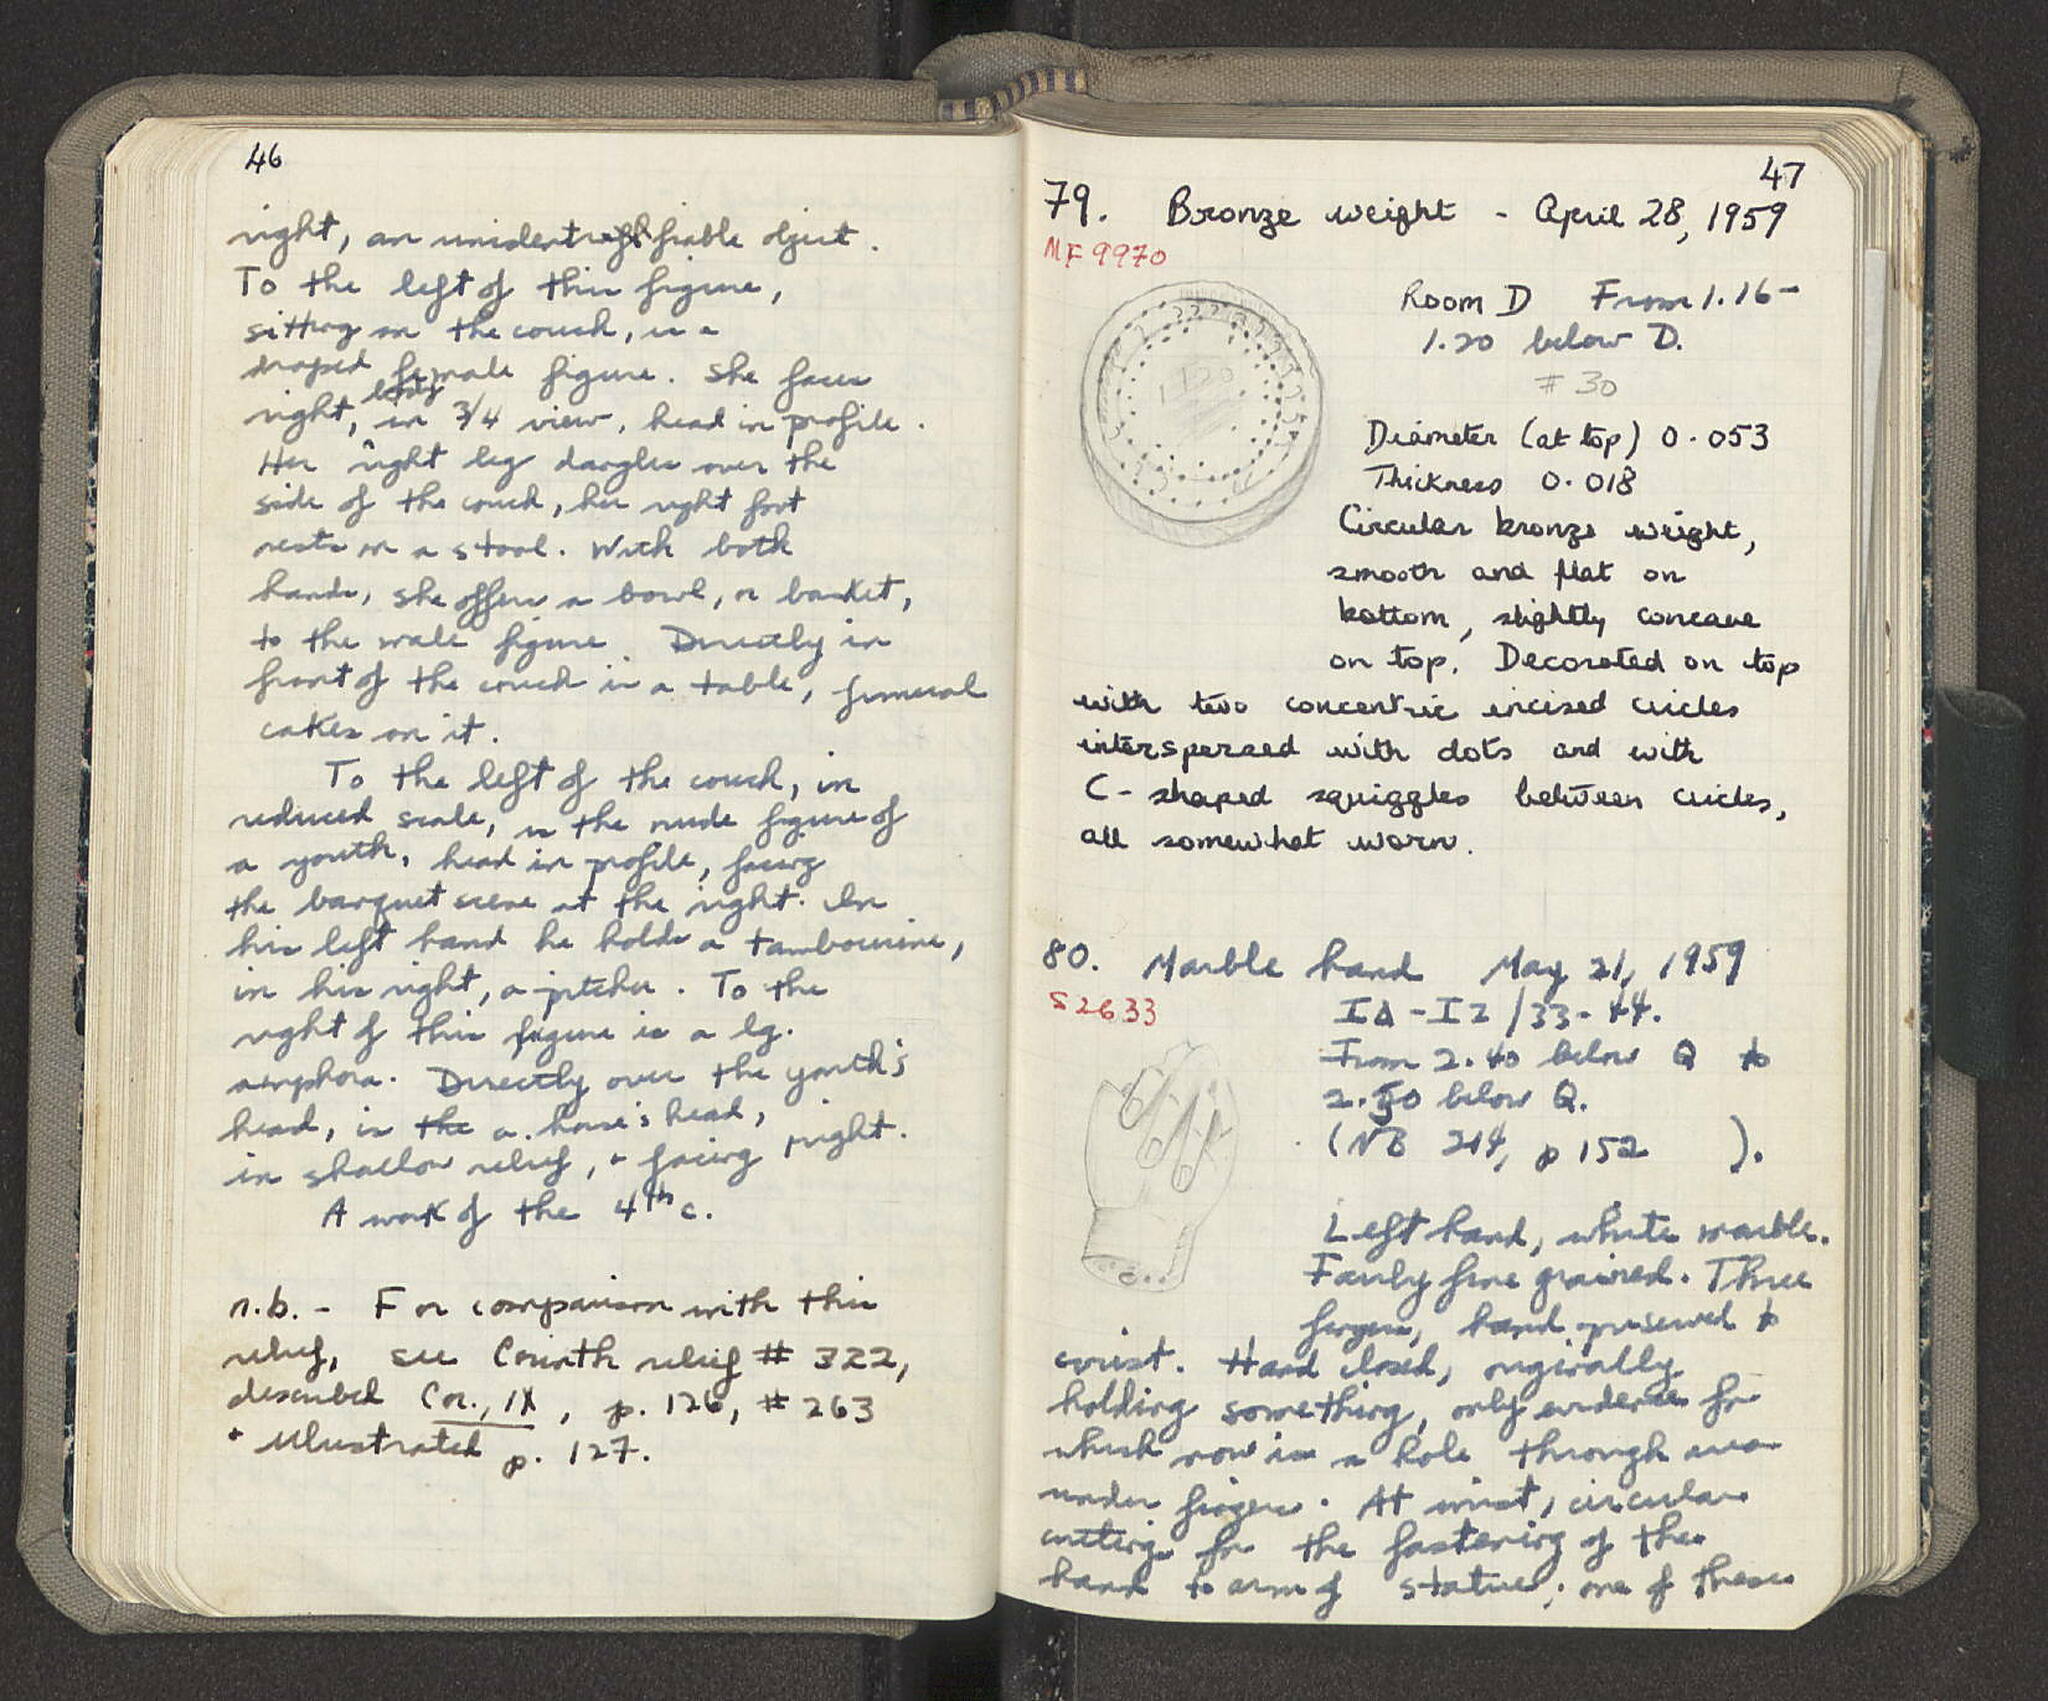 46
right, an unidentifiable object.
To the left of this figure,
sitting on the couch, is a
draped female figure. She faces
right, body in 3/4 view, head in profile.
Her right leg dangles over the
side of the couch, her right foot
rests on a stool. With both
hands, she offers a bowl, or basket,
to the male figure. Directly in
front of the couch is a table, funeral
cakes on it.
To the left of the couch, in
reduced scale, is the nude figure of
a youth, head in profile, facing
the banquet scene at the right. In
his left hand he holds a tambourine,
in his right, a pitcher. To the
right of this figure is a lg.
amphora. Directly over the youth's
head, is the a horse's head,
in shallow relief, + facing right.
A work of the 4th c.
n.b. - For comparison with this
relief, see Corinth relief # 322,
described Cor., IX, p. 126, # 263
+ illustrated p. 127.
47
79. Bronze weight - April 28, 1959
MF 9970
Room D From 1.16-
1.20 below D.
# 30
Diameter (at top) 0.053
Thickness 0.018
Circular bronze weight,
smooth and flat on
bottom, slightly concave
on top. Decorated on top
with two concentric incised circles
interspersed with dots and with
C-shaped squiggles between circles,
all somewhat worn.
80. Marble hand May 21, 1959
S 2633
IΔ-IZ/33-44.
From 2.40 below Q to
2.50 below Q.
(NB 214, p 152 ).
Left hand, white marble.
Fairly fine grained. Three
fingers, hand preserved to
wrist. Hand closed, originally
holding something, only evidence for
which now is a hole through area
under fingers. At wrist, circular
cuttings for the fastening of the
hand to arm of statue; one of these